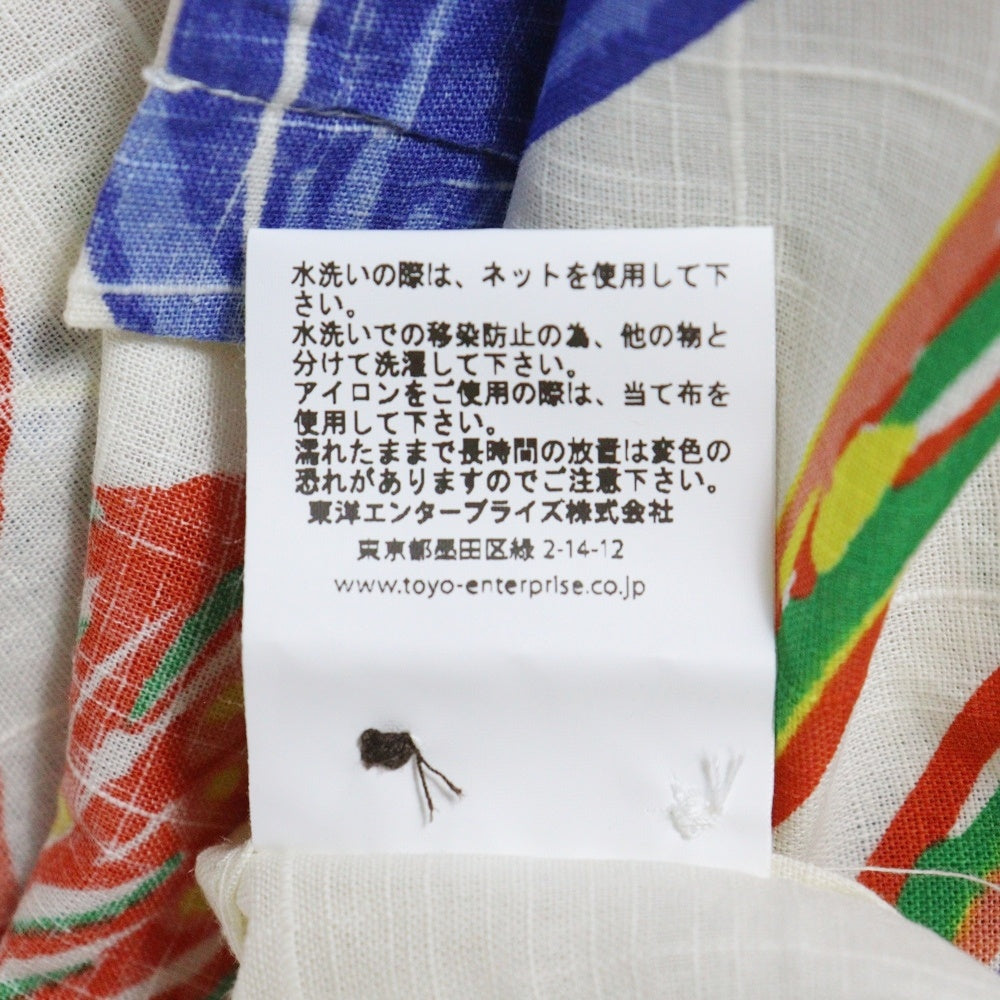 水洗いの際は、ネットを使用して下
さい。
水洗いでの移染防止の為、他の物と
分けて洗濯して下さい。
アイロンをご使用の際は、当て布を
使用して下さい。
濡れたままで長時間の放置は変色の
恐れがありますのでご注意下さい。
東洋エンタープライズ株式会社
東京都墨田区緑 2-14-12
www.toyo-enterprise.co.jp